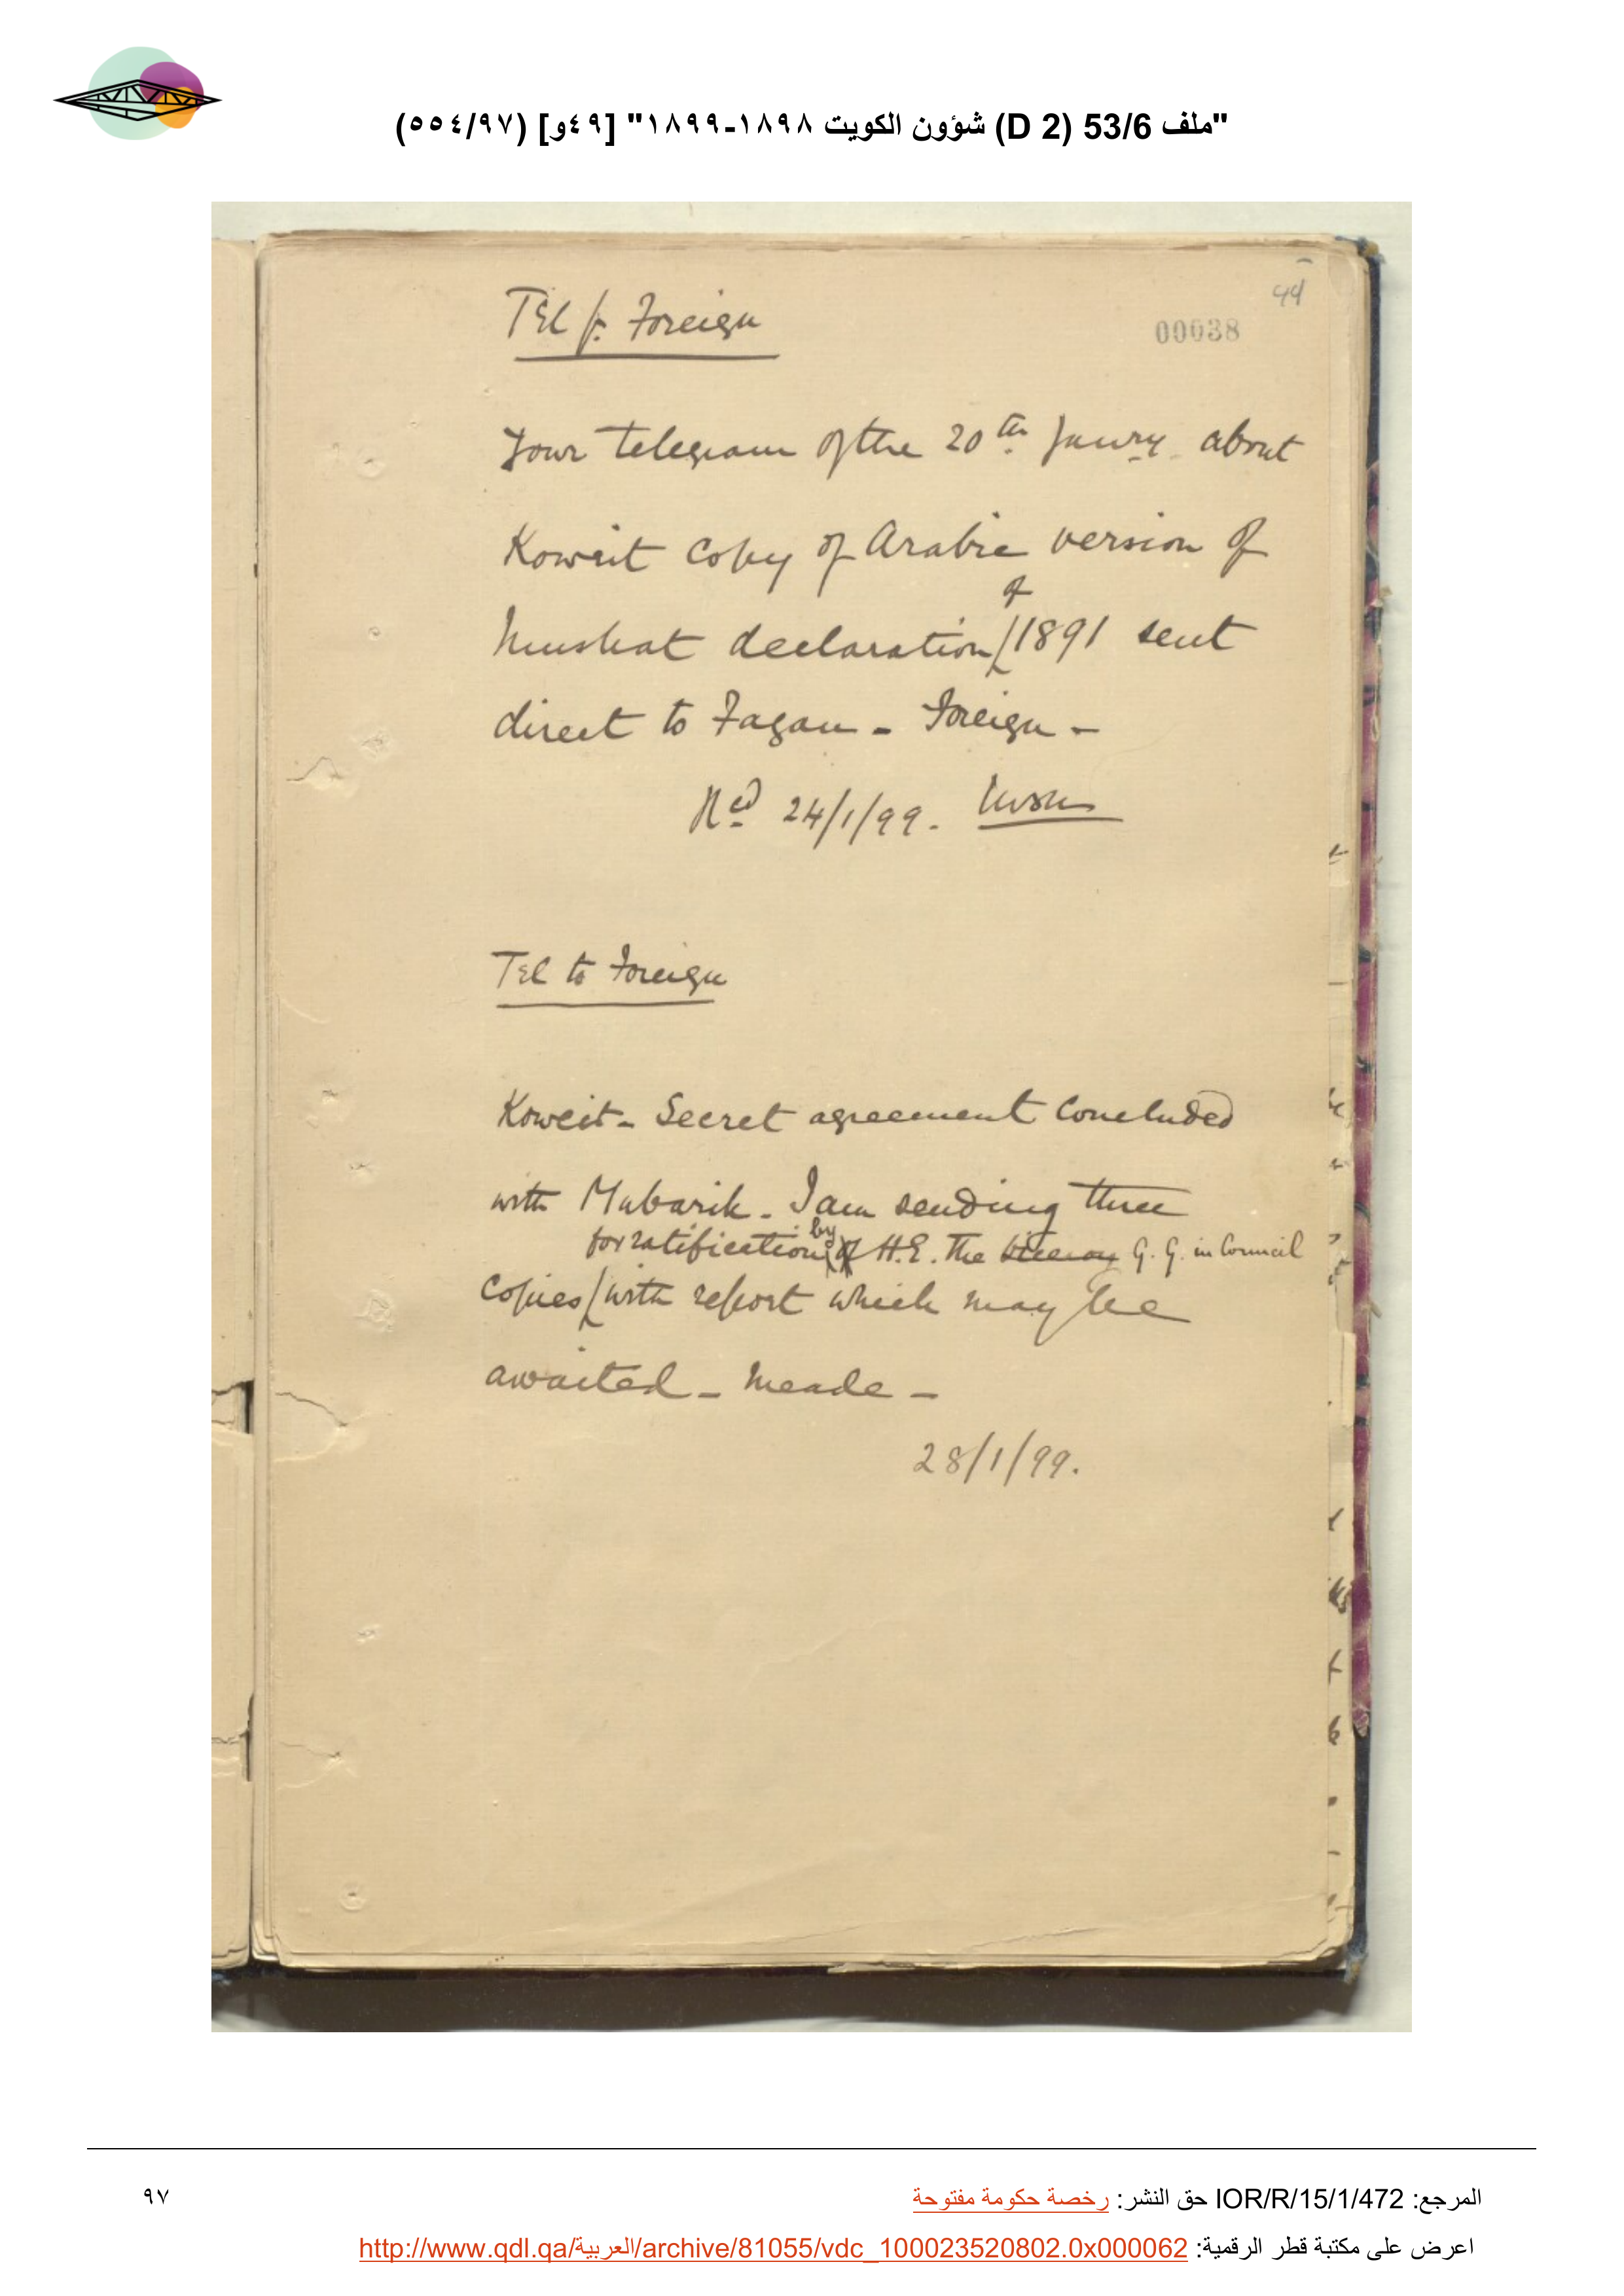 "ملف 53/6 (D 2) شؤون الكويت ١٨٩٨-١٨٩٩" [٤٩و] (٥٥٤/٩٧)
00038
Tel f. Foreign
Your telegram of the 20th Janry. about
Koweit copy of Arabic version of
of
Muskat declaration 1891 sent
direct to Fagan - Foreign -
Red 24/1/99.
Tel to Foreign
Koweit - Secret agreement concluded
with Mubarik. I am sending three
by
for ratification of H.E. the Viceroy G. G. in Council
copies with report which may be
awaited - Meade -
28/1/99.
المرجع: IOR/R/15/1/472 حق النشر: رخصة حكومة مفتوحة
٩٧
اعرض على مكتبة قطر الرقمية: http://www.qdl.qa/العربية/archive/81055/vdc_100023520802.0x000062